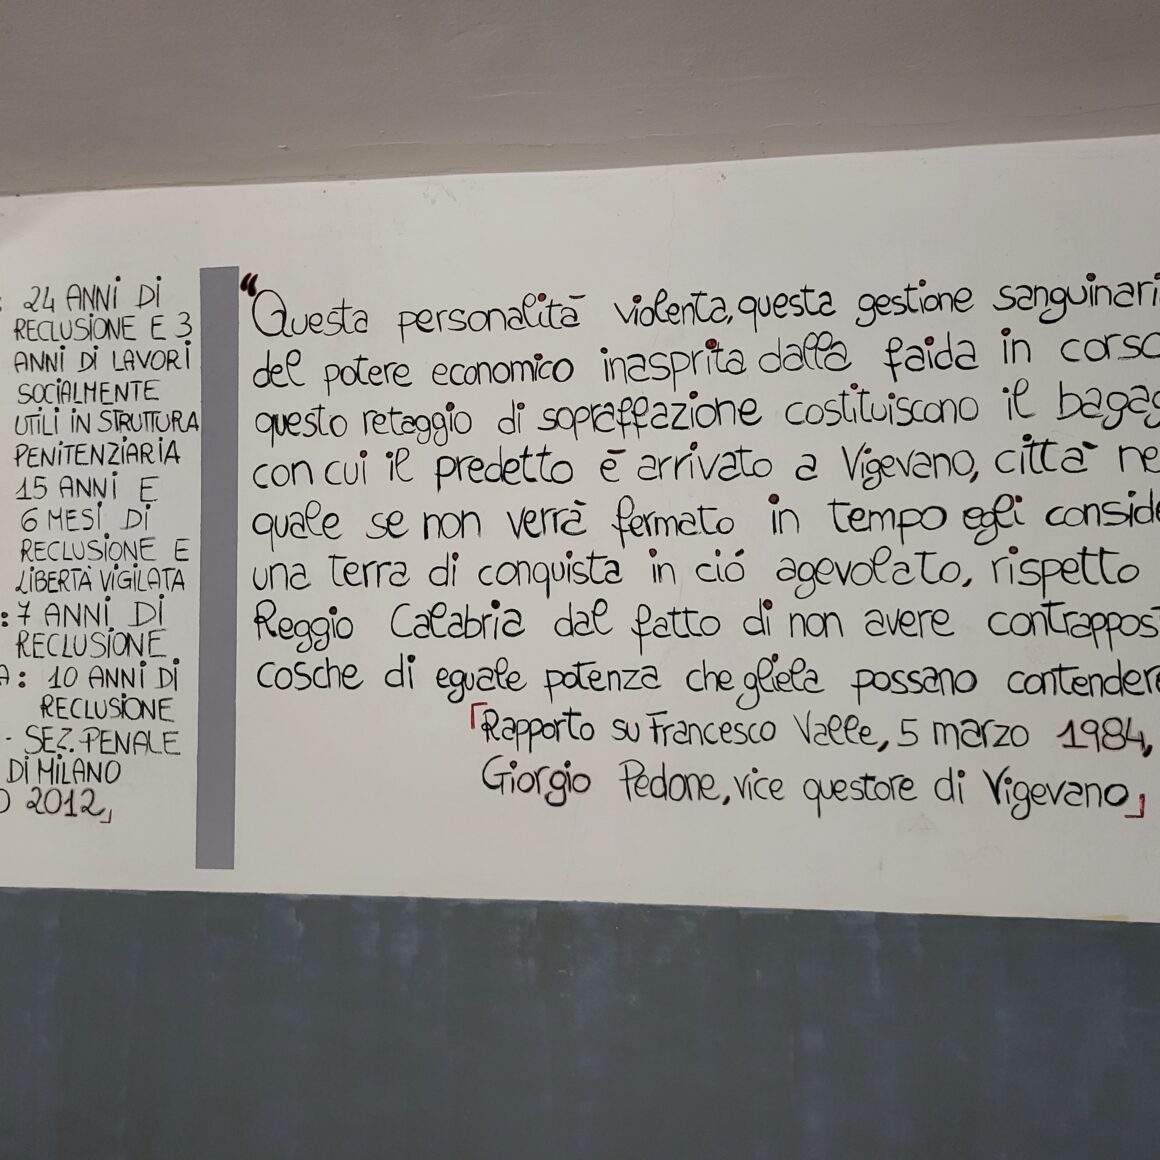 : 24 ANNI DI
RECLUSIONE E 3
ANNI DI LAVORI
SOCIALMENTE
UTILI IN STRUTTURA
PENITENZIARIA
15 ANNI E
6 MESI DI
RECLUSIONE E
LIBERTÀ VIGILATA
: 7 ANNI DI
RECLUSIONE
A: 10 ANNI DI
RECLUSIONE
- SEZ. PENALE
DI MILANO
O 2012」
“Questa personalità violenta, questa gestione sanguinari
del potere economico inasprita dalla faida in corso
questo retaggio di sopraffazione costituiscono il bagag
con cui il predetto è arrivato a Vigevano, città ne
quale se non verrà fermato in tempo egli conside
una terra di conquista in ció agevolato, rispetto
Reggio Calabria dal fatto di non avere contrappost
cosche di eguale potenza che gliela possano contendere
「Rapporto su Francesco Valle, 5 marzo 1984,
Giorgio Pedone, vice questore di Vigevano」